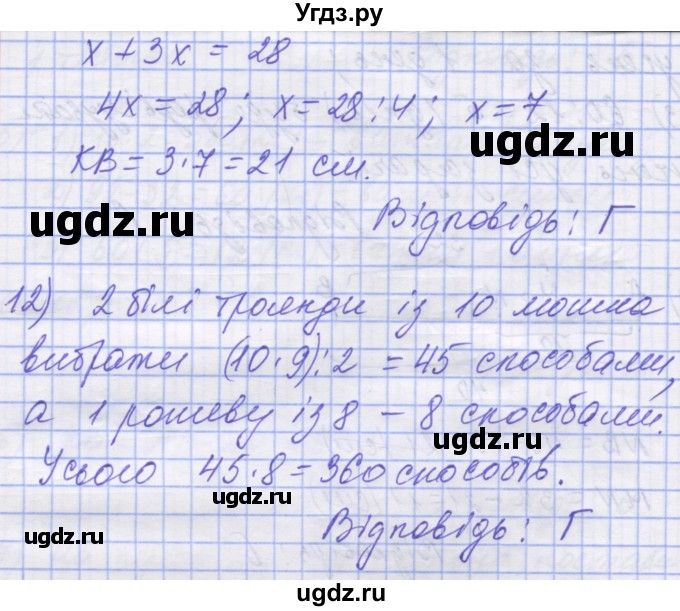 Угдз.ру
x + 3x = 28
4x = 28; x = 28 : 4; x = 7
KB = 3 · 7 = 21 см.
ugdz.ru
ugdz.ru
Відповідь: Г
ugdz.ru
12) 2 білі троянди із 10 можна
вибрати (10 · 9) : 2 = 45 способами,
а 1 рожеву із 8 – 8 способами.
ugdz.ru
Усього 45 · 8 = 360 способів.
ugdz.ru
Відповідь: Г
ugdz.ru
ugdz.ru